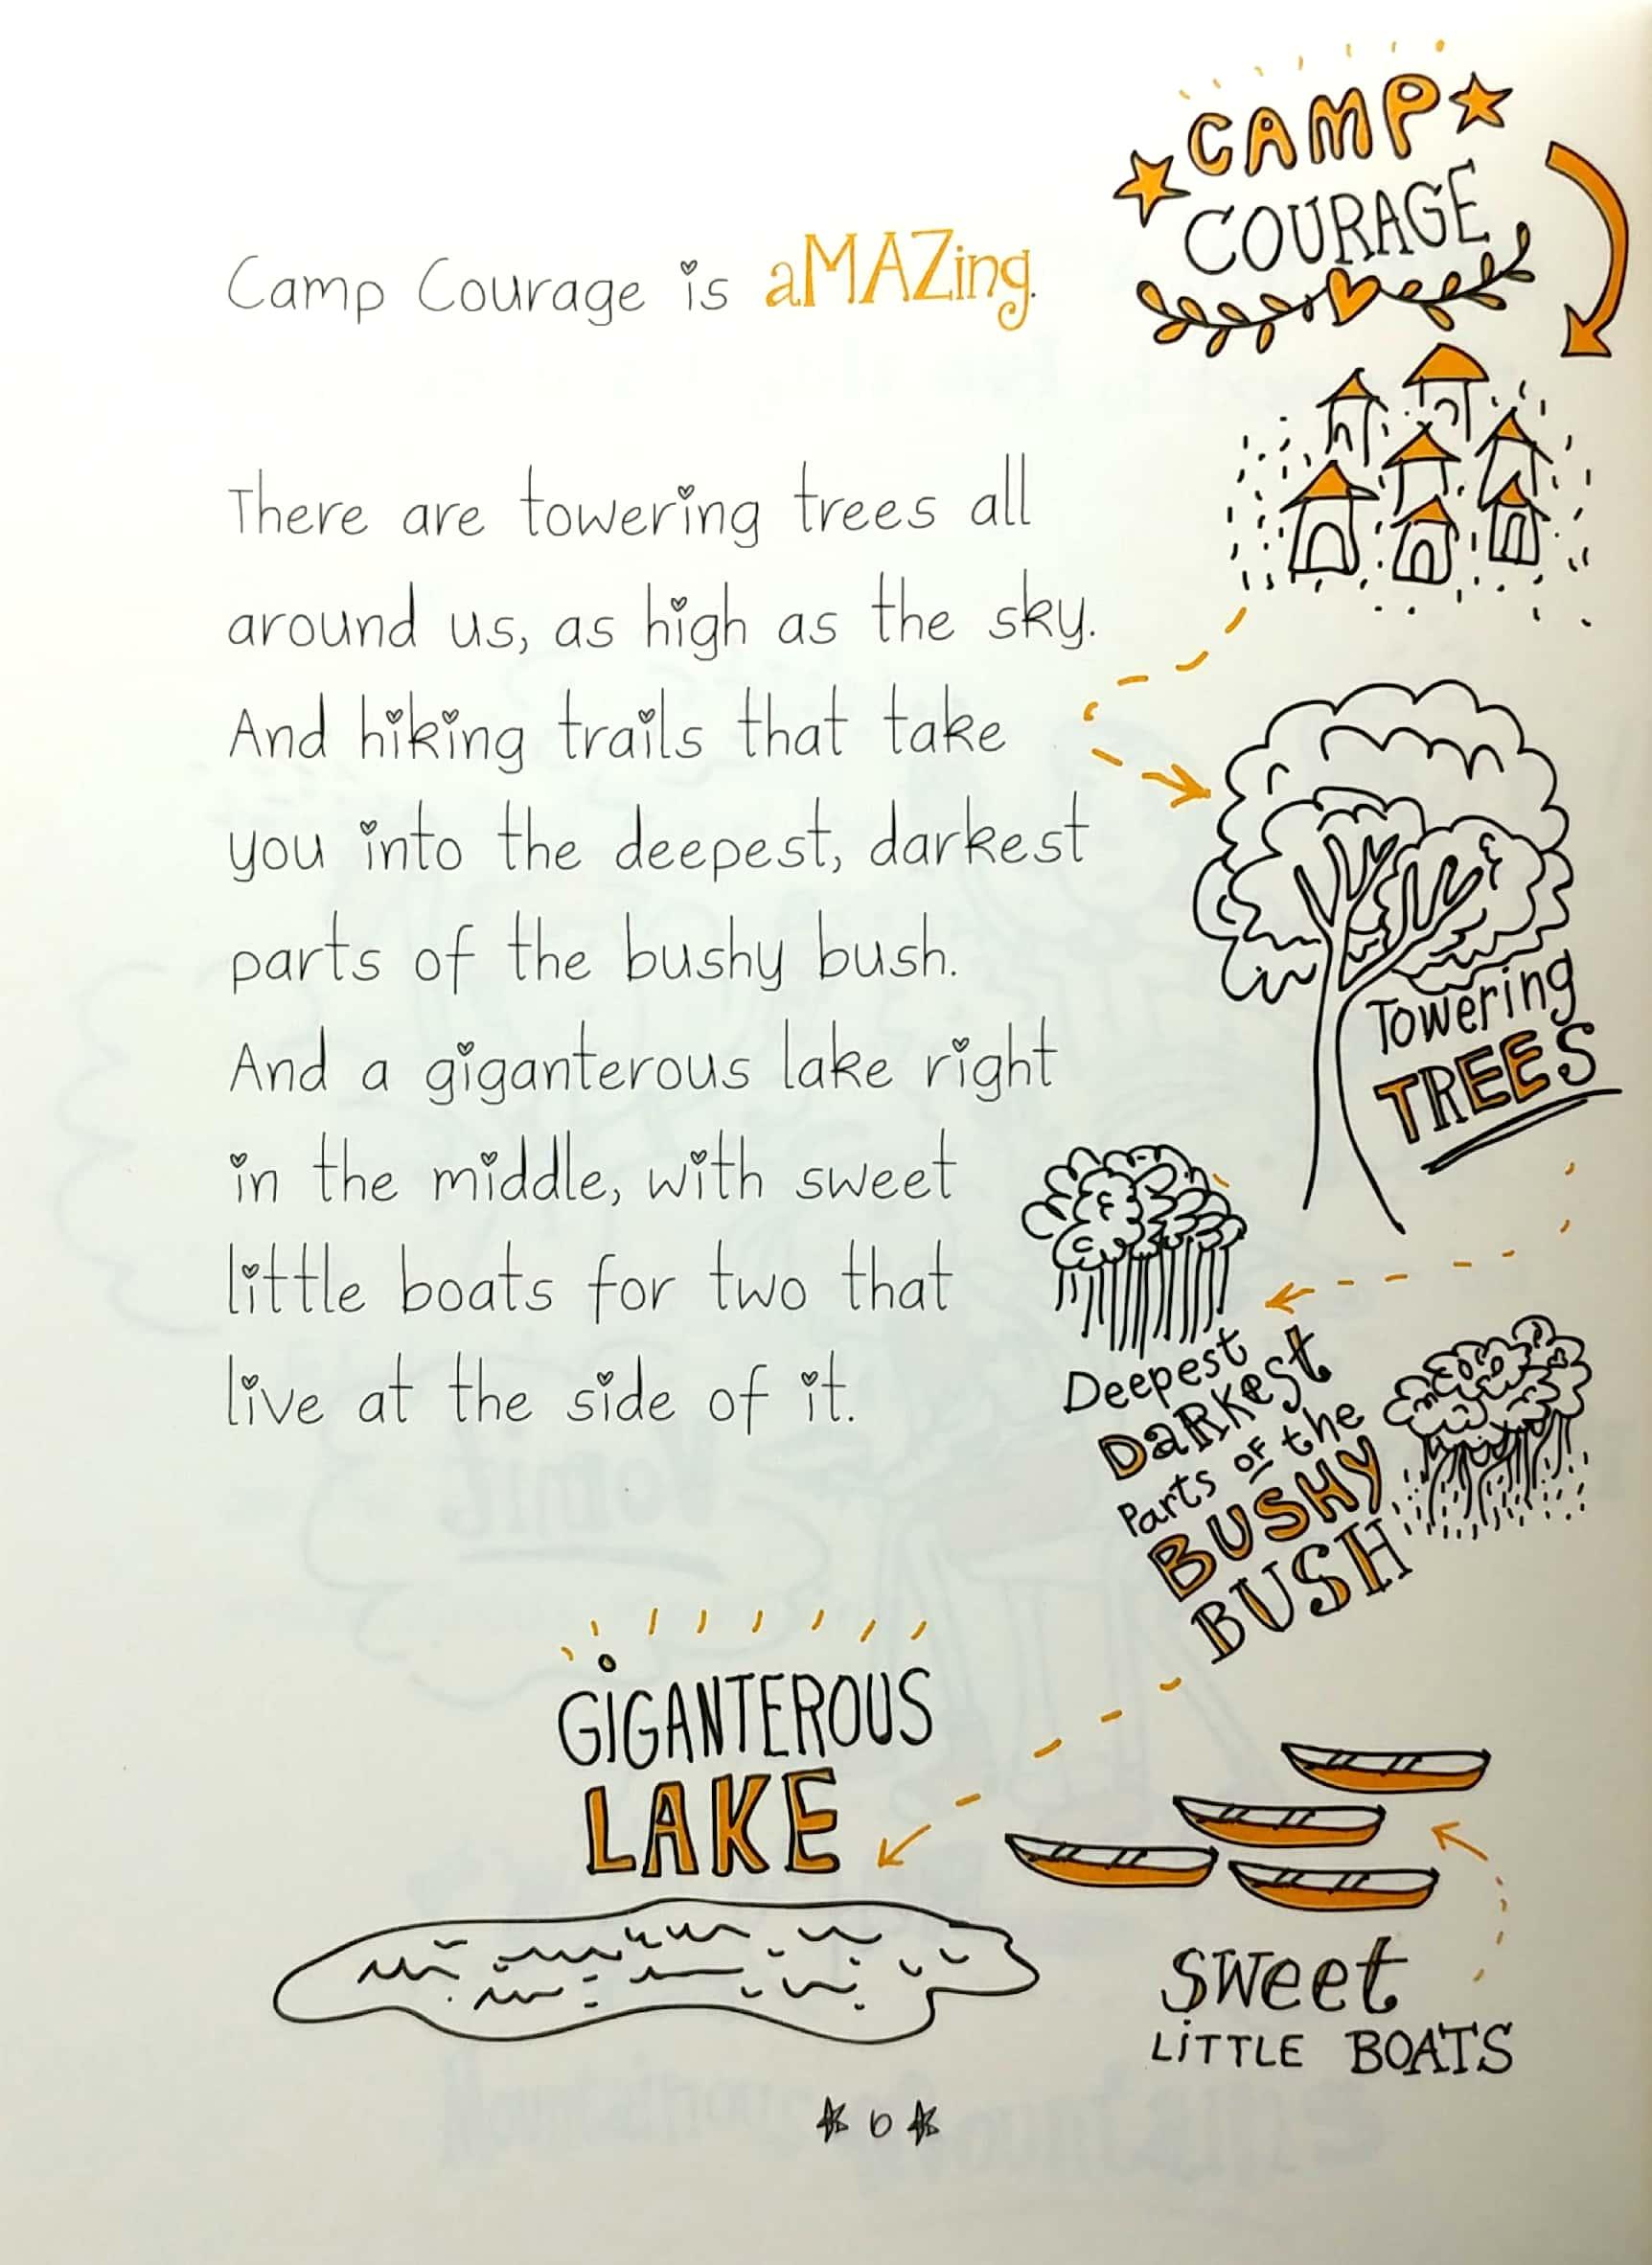 CAMP
COURAGE
Camp Courage is aMAZing.
There are towering trees all
around us, as high as the sky.
And hiking trails that take
you into the deepest, darkest
parts of the bushy bush.
And a giganterous lake right
in the middle, with sweet
little boats for two that
live at the side of it.
Towering
TREES
Deepest
DaRKest
Parts OF the
BUSHY
BUSH
GIGANTEROUS
LAKE
Sweet
LiTTLE BOATS
6